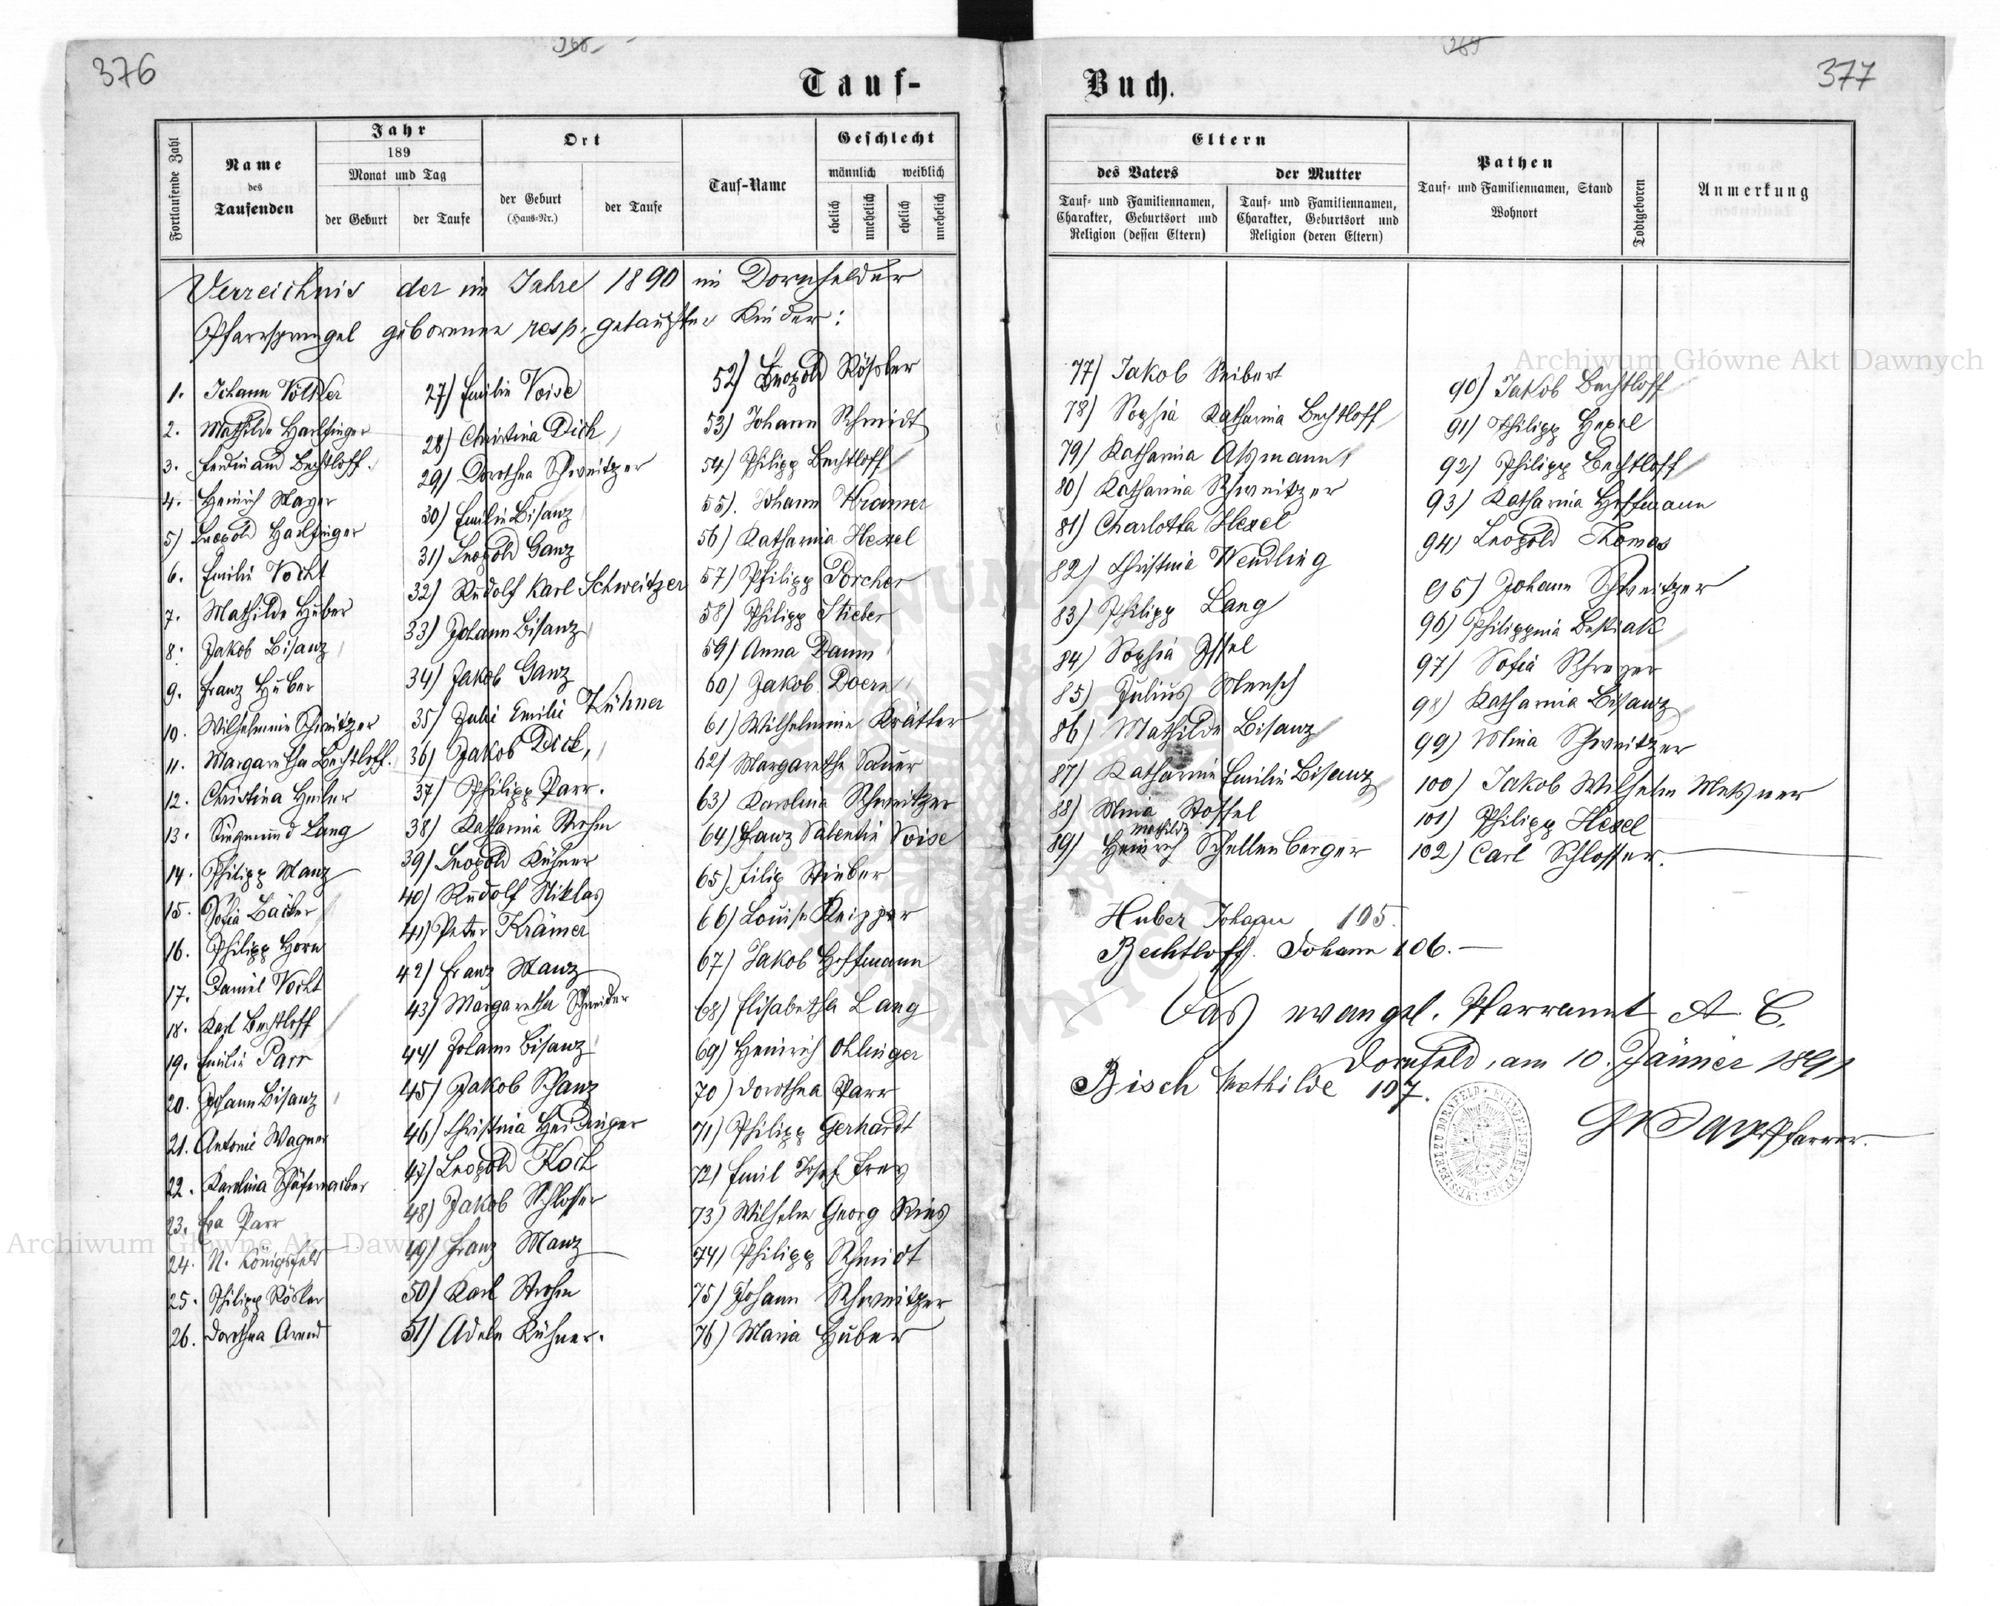 376
Tauf-
Fortlaufende Zahl
Name
des
Taufenden
Jahr
189
Monat und Tag
der Geburt
der Taufe
Ort
der Geburt
(Haus-Nr.)
der Taufe
Tauf-Name
Geschlecht
männlich
weiblich
ehelich
unehelich
ehelich
unehelich
Verzeichnis der im Jahre 1890 im Dornfelder
Pfarrsprengel geborenen resp. getauften Kinder:
1. Johann Völker
2. Mathilde Harlfinger
3. Ferdinand Bechtloff.
4. Heinrich Mayer
5) Leopold Harlfinger
6. Emilie Vocht
7. Mathilde Huber
8. Jakob Bisanz
9. Franz Huber
10. Wilhelmine Schweitzer
11. Margaretha Bechtloff.
12. Christina Heiler
13. Siegmund Lang
14. Philipp Manz
15. Sofia
16. Philipp Horn
17. Daniel Vocht
18. Karl Bechtloff
19. Emilie Parr
20. Johann Bisanz
21. Antonie Wagner
22. Karolina
23. Eva Parr
24. N. Königsfeld
25. Philipp Rösler
26. Dorothea Arend
27) Emilie Voise
28) Christina Dick
29) Dorothea Schweitzer
30) Emilie Bisanz
31) Leopold Ganz
32) Rudolf Karl Schweitzer
33) Johann Bisanz
34) Jakob Ganz
35) Julie Emilie Kühner
36) Jakob Dick,
37) Philipp Parr.
38) Katharina Strohm
39) Leopold Kühner
40) Rudolf Niklas
41) Peter Krämer
42) Franz Manz
43) Margaretha Schneider
44) Johann Bisanz
45) Jakob Schanz
46) Christina Heidinger
47) Leopold Koch
48) Jakob Schlosser
49) Franz Manz
50) Karl Strohm
51) Adele Kühner.
52) Leopold Rössler
53) Johann Schmidt
54) Philipp Bechtloff
55). Johann Kramer
56) Katharina Hexel
57) Philipp Porcher
58) Philipp Stieber
59) Anna Daum
60) Jakob Doern
61) Wilhelmine Krätter
62) Margarethe Sauer
63) Karolina Schweitzer
64) Franz Valentin Voise
65) Filip Stieber
66) Louise Keipper
67) Jakob Hoffmann
68) Elisabetha Lang
69) Heinrich Ohlinger
70) Dorothea Parr
71) Philipp Gerhardt
72) Emil Josef Frey
73) Wilhelm Georg Ries
74) Philipp Schmidt
75) Johann Schweitzer
76) Maria Huber
377
Buch.
Eltern
des Vaters
Tauf- und Familiennamen,
Charakter, Geburtsort und
Religion (dessen Eltern)
der Mutter
Tauf- und Familiennamen,
Charakter, Geburtsort und
Religion (deren Eltern)
Pathen
Tauf- und Familiennamen, Stand
Wohnort
Todtgeboren
Anmerkung
77) Jakob Seibert
78) Sophia Katharina Bechtloff
79) Katharina Aßmann
80) Katharina Schweitzer
81) Charlotta Hexel
82) Christina Wendling
83) Philipp Lang
84) Sophia
85) Julius Mensch
86) Mathilde Bisanz
87) Katharine Emilie Bisanz
88) Mina Stoffel
Mathilde
89) Heinrich Schellenberger
90) Jakob Bechtloff
91) Philipp Hexel
92) Philipp Bechtloff
93) Katharina Hoffmann
94) Leopold Thomas
95) Johann Schweitzer
96) Philippina Beskiak
97) Sofia Schreyer
98) Katharina Bisanz
99) Mina Schweitzer
100) Jakob Wilhelm Metzner
101) Philipp Hexel
102) Carl Schlosser.
Huber Johann 105.
Bechtloff. Johann 106.—
Das evangel. Pfarramt A. C.
Dornfeld, am 10. Jänner 1891
Bisch Mathilde 107.
Pfarrer.
Archiwum Główne Akt Dawnych
Archiwum Główne Akt Dawnych